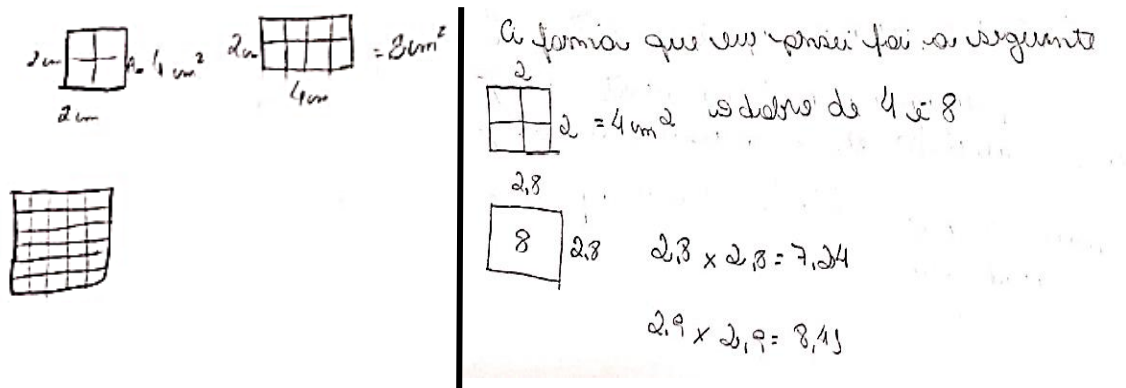 2cm
A = 4 cm²
2cm
2cm
= 8cm²
4cm
A forma que eu pensei foi a seguinte
2
2 = 4cm² o dobro de 4 é 8
2,8
8
2,8
2,8 x 2,8 = 7,24
2,9 x 2,9 = 8,41